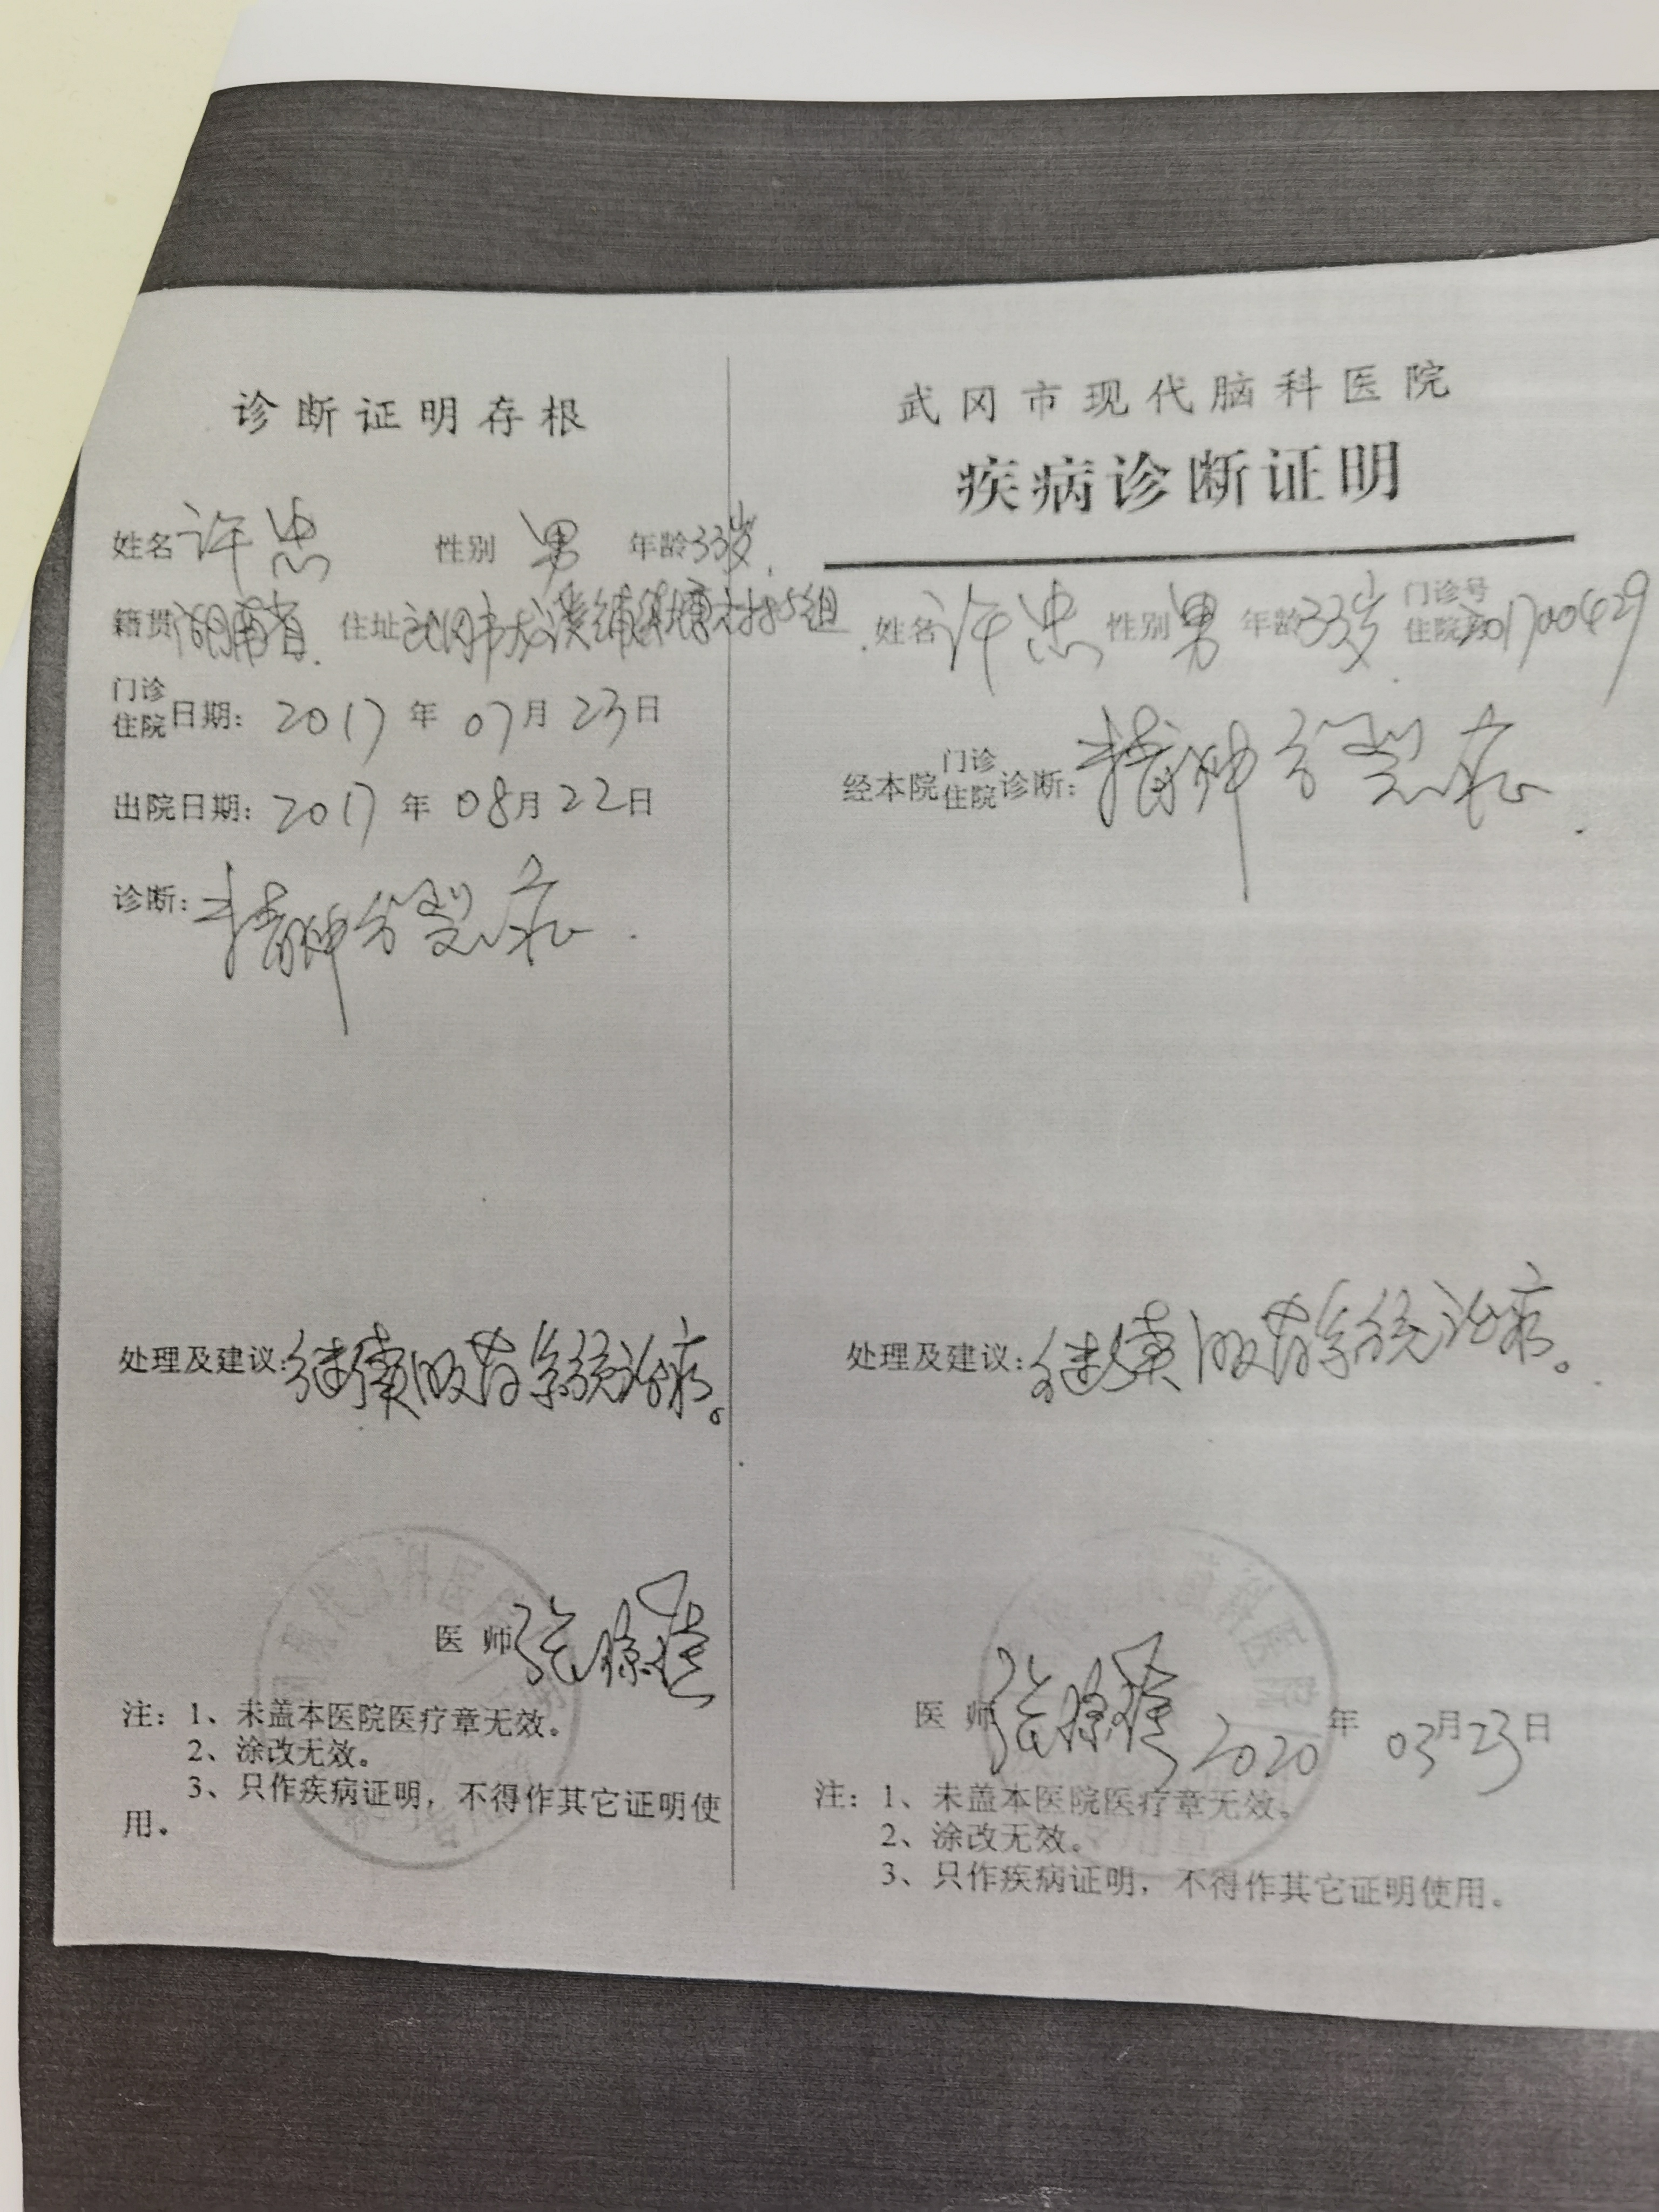 诊断证明存根
姓名 许忠 性别 男 年龄 33岁.
籍贯 湖南省. 住址 武冈市 5组
门诊
住院 日期: 2017 年 07 月 23 日
出院日期: 2017 年 08 月 22 日
诊断: 精神分裂症.
处理及建议: 继续服药系统治疗。
医 师 张
注: 1、未盖本医院医疗章无效。
2、涂改无效。
3、只作疾病证明, 不得作其它证明使
用。
武冈市现代脑科医院
疾病诊断证明
姓名 许忠 性别 男 年龄 33岁 门诊号
住院号 201700429
经本院 门诊
住院 诊断: 精神分裂症.
处理及建议: 继续服药系统治疗。
医 师 张 2020 年 03 月 23 日
注: 1、未盖本医院医疗章无效。
2、涂改无效。
3、只作疾病证明, 不得作其它证明使用。